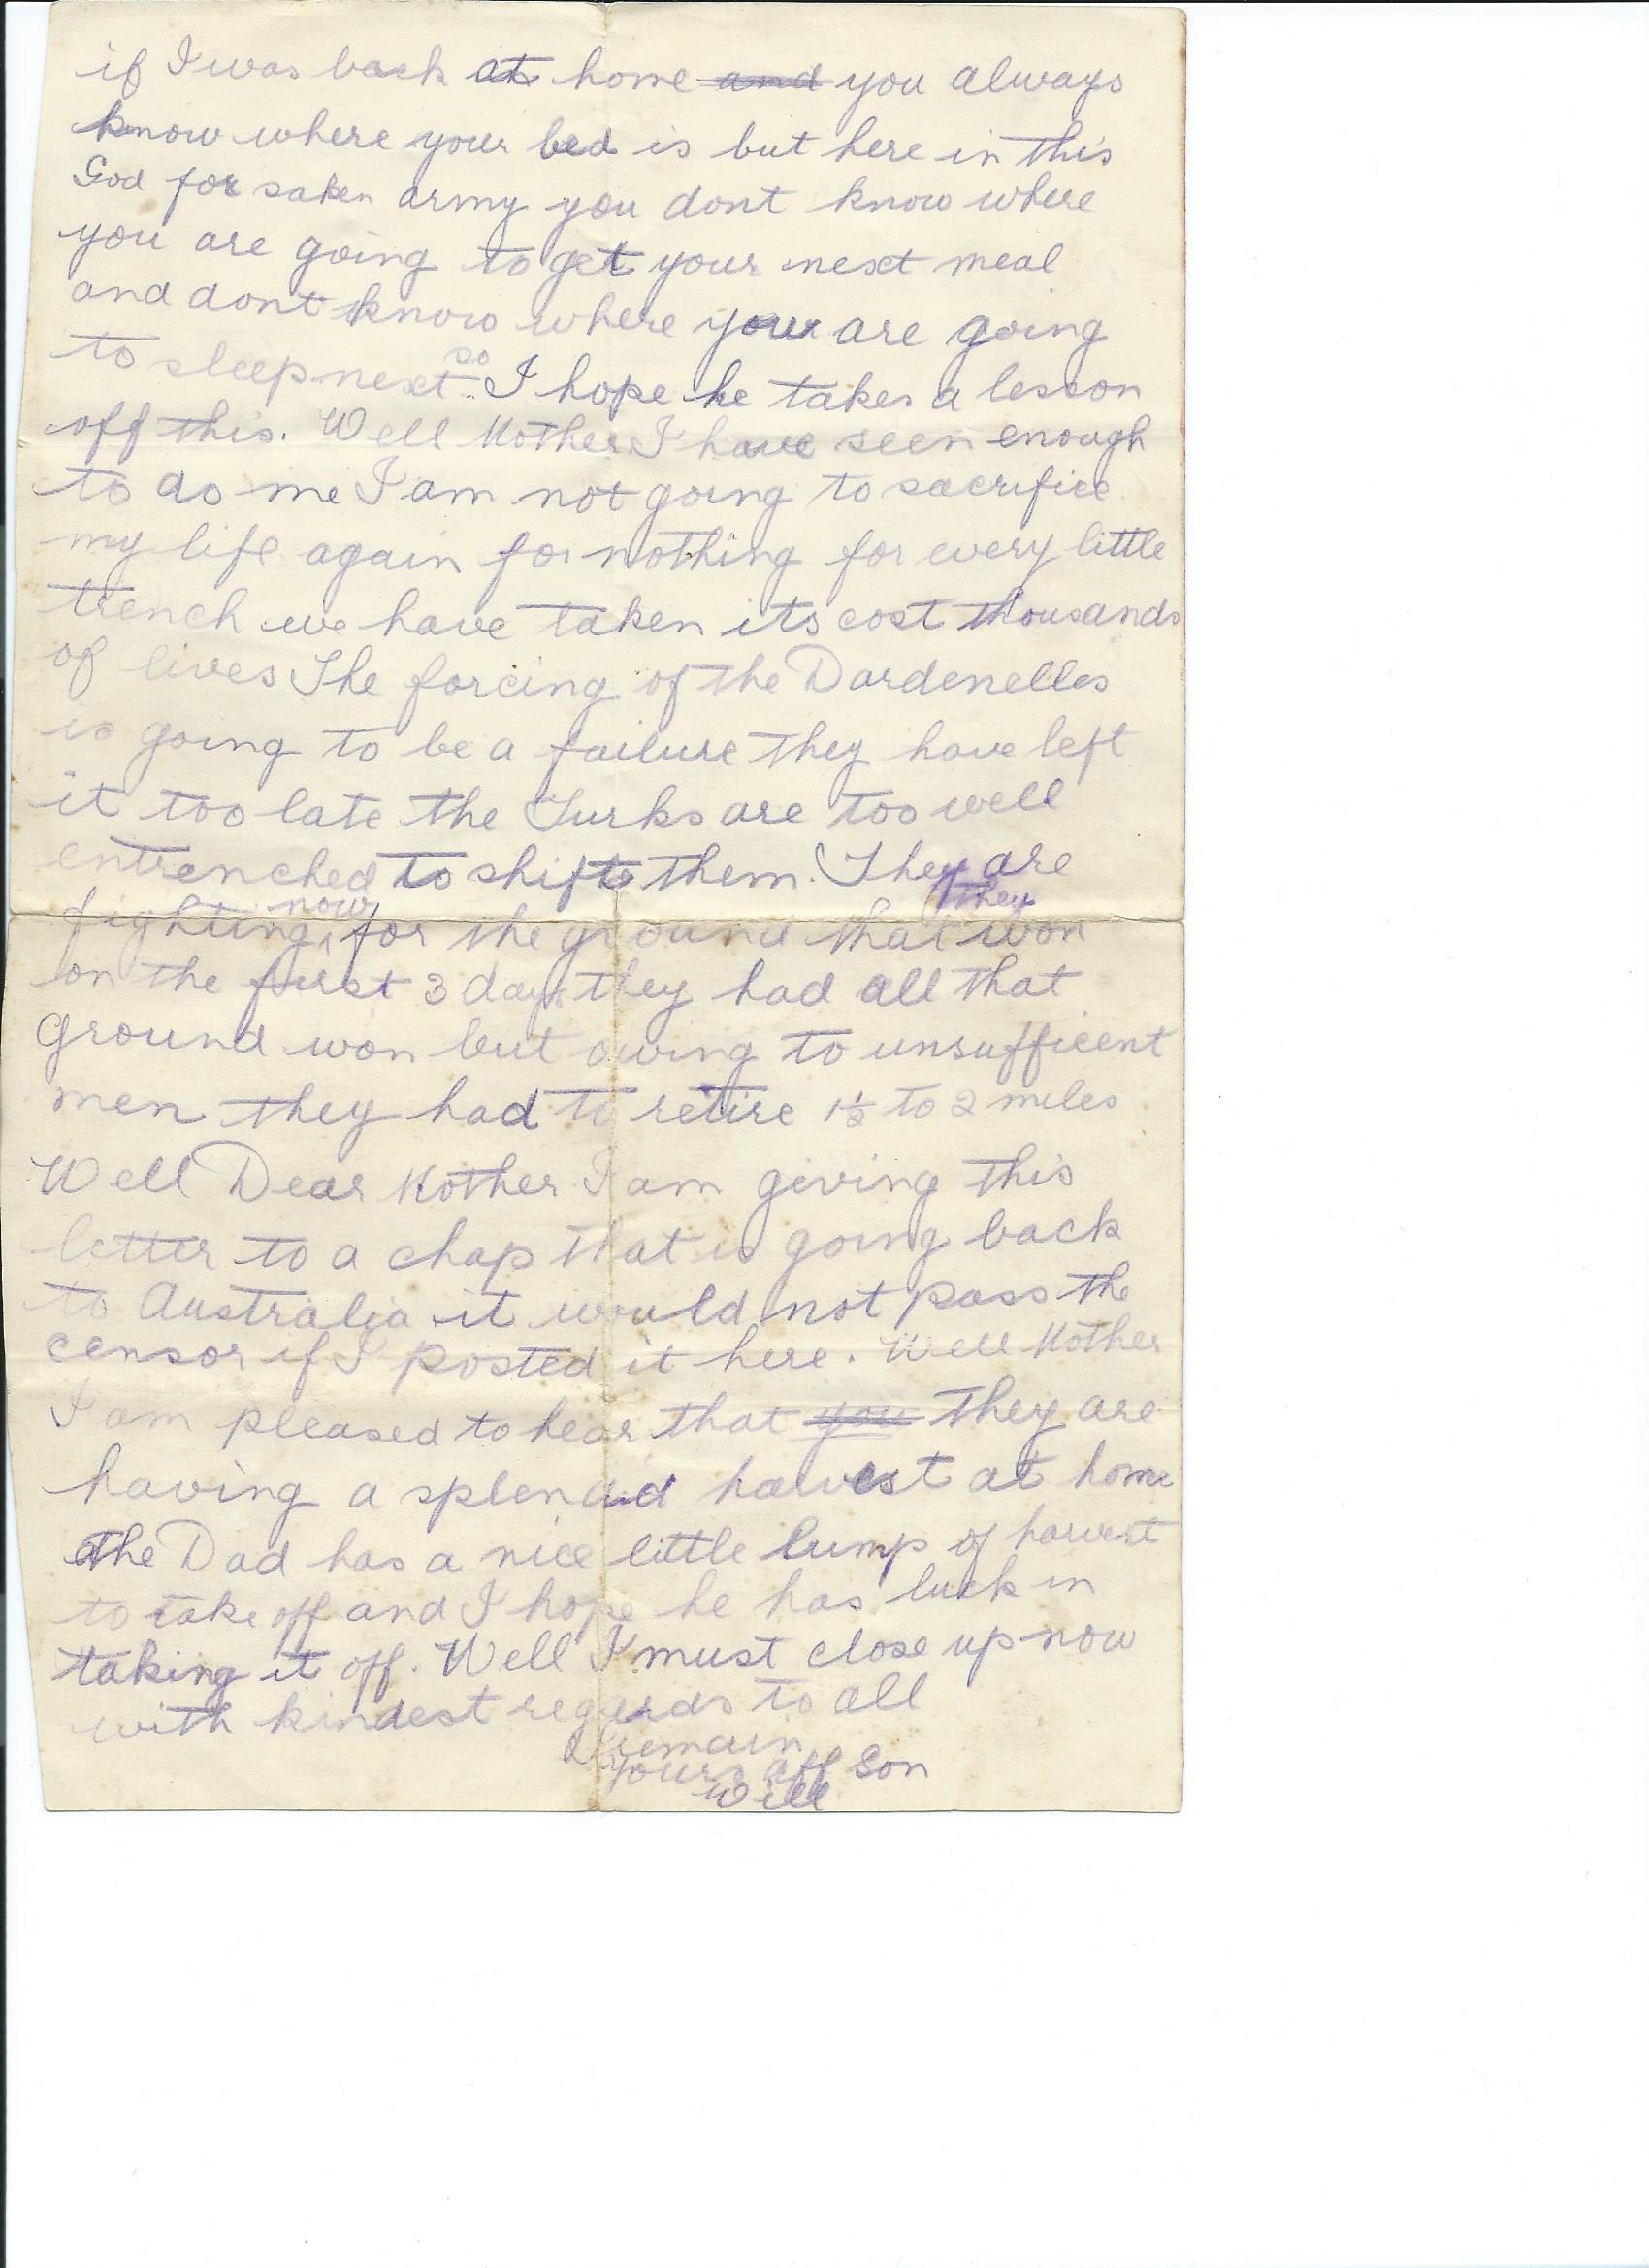 if I was back at home and you always
know where your bed is but here in this
God for saken army you dont know where
you are going to get your next meal
and dont know where your are going
so
to sleep next I hope he takes a lesson
off this. Well Mother I have seen enough
to do me I am not going to sacrifice
my life again for nothing for every little
trench we have taken its cost thousands
of lives The forcing of the Dardenelles
is going to be a failure they have left
it too late the Turks are too well
entrenched to shift them. They are
now they
fighting for the ground that won
on the first 3 days they had all that
ground won but owing to unsufficent
men they had to retire 1½ to 2 miles
Well Dear Mother I am giving this
letter to a chap that is going back
to Australia it would not pass the
censor if I posted it here. Well Mother
I am pleased to hear that you they are
having a splendid harvest at home
the Dad has a nice little lump of harvest
to take off and I hope he has luck in
taking it off. Well I must close up now
with kindest regards to all
I remain
Yours aff Son
Will